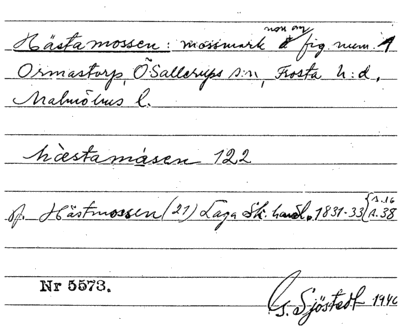 Hästamossen: mossmark å fig num. 1
Ormastorp, Ö Sallerups s:n, Frosta h:d,
Malmöhus l.
hæstamåsen 122
sp. Hästmossen (21) Laga Sk. handl. 1831-33 {s.16 s.38
Nr 5573.
G. Sjöstedt 1946